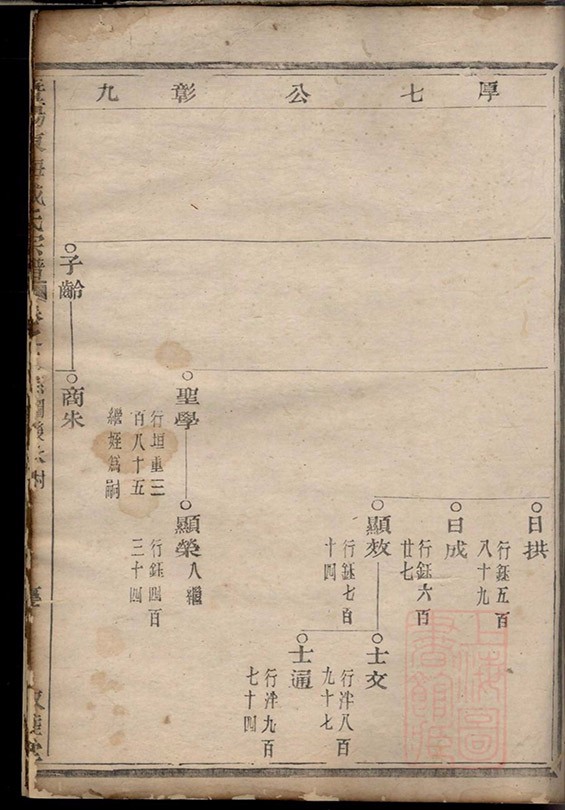 厚七公彰九
日拱
行鈺五百
八十九
日成
行鈺六百
廿七
顯效
行鈺七百
十四
士文
行泮八百
九十七
士通
行泮九百
七十四
聖學
行垣重三
百八十五
繼姪為嗣
顯榮入繼
行鈺四百
三十四
子齡
商朱
氏宗譜
上海圖書館藏